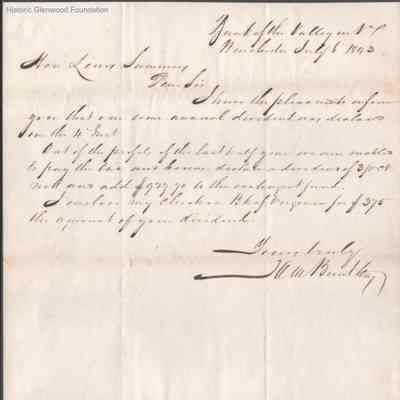 Historic Glenwood Foundation
Bank of the Valley in Va
Winchester July 6 1843
Hon Lewis Summers
Dear Sir
I have the pleasure to inform
you that our semi annual dividend was declared
on the 4th Inst
Out of the profits of the last half year we were enabled
to pay the tax and bonus, declare a dividend of 3 pr ct
and add $ to the contingent fund.
I enclose my check on Bk of Virginia for $375
the amount of your dividend
Yours truly